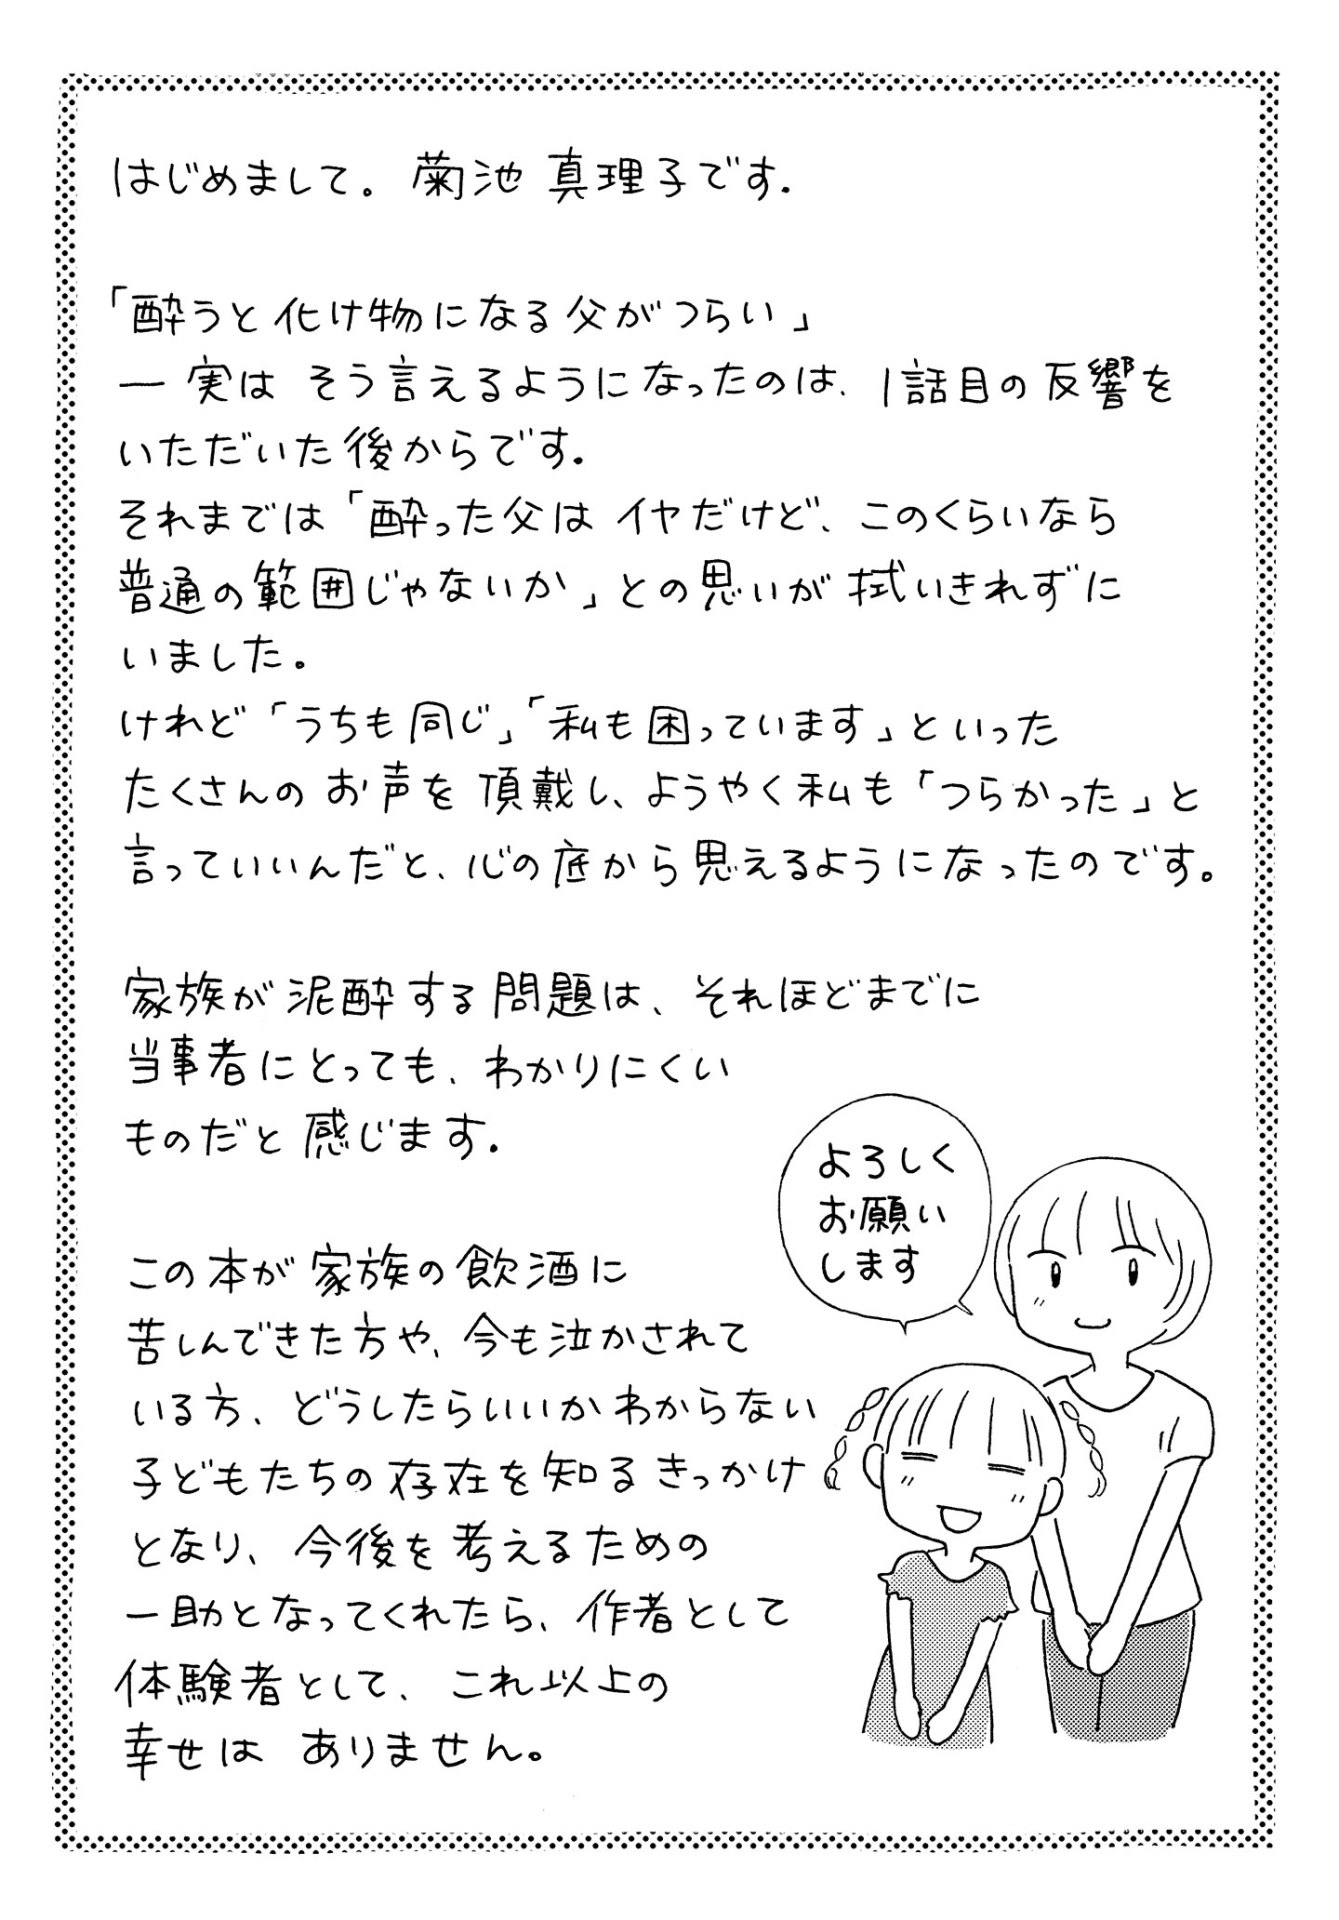 はじめまして。菊池 真理子です.
「酔うと化け物になる父がつらい」
― 実は そう言えるようになったのは、1話目の反響を
いただいた後からです.
それまでは「酔った父は イヤだけど、このくらいなら
普通の範囲じゃないか」との思いが拭いきれずに
いました。
けれど「うちも同じ」「私も困っています」といった
たくさんの お声を 頂戴し、ようやく私も「つらかった」と
言っていいんだと、心の底から思えるようになったのです。
家族が泥酔する問題は、それほどまでに
当事者にとっても、わかりにくい
ものだと感じます.
この本が家族の飲酒に
苦しんできた方や、今も泣かされて
いる方、どうしたらいいかわからない
子どもたちの存在を知るきっかけ
となり、今後を考えるための
一助となってくれたら、作者として
体験者として、これ以上の
幸せは ありません。
よろしく
お願い
します